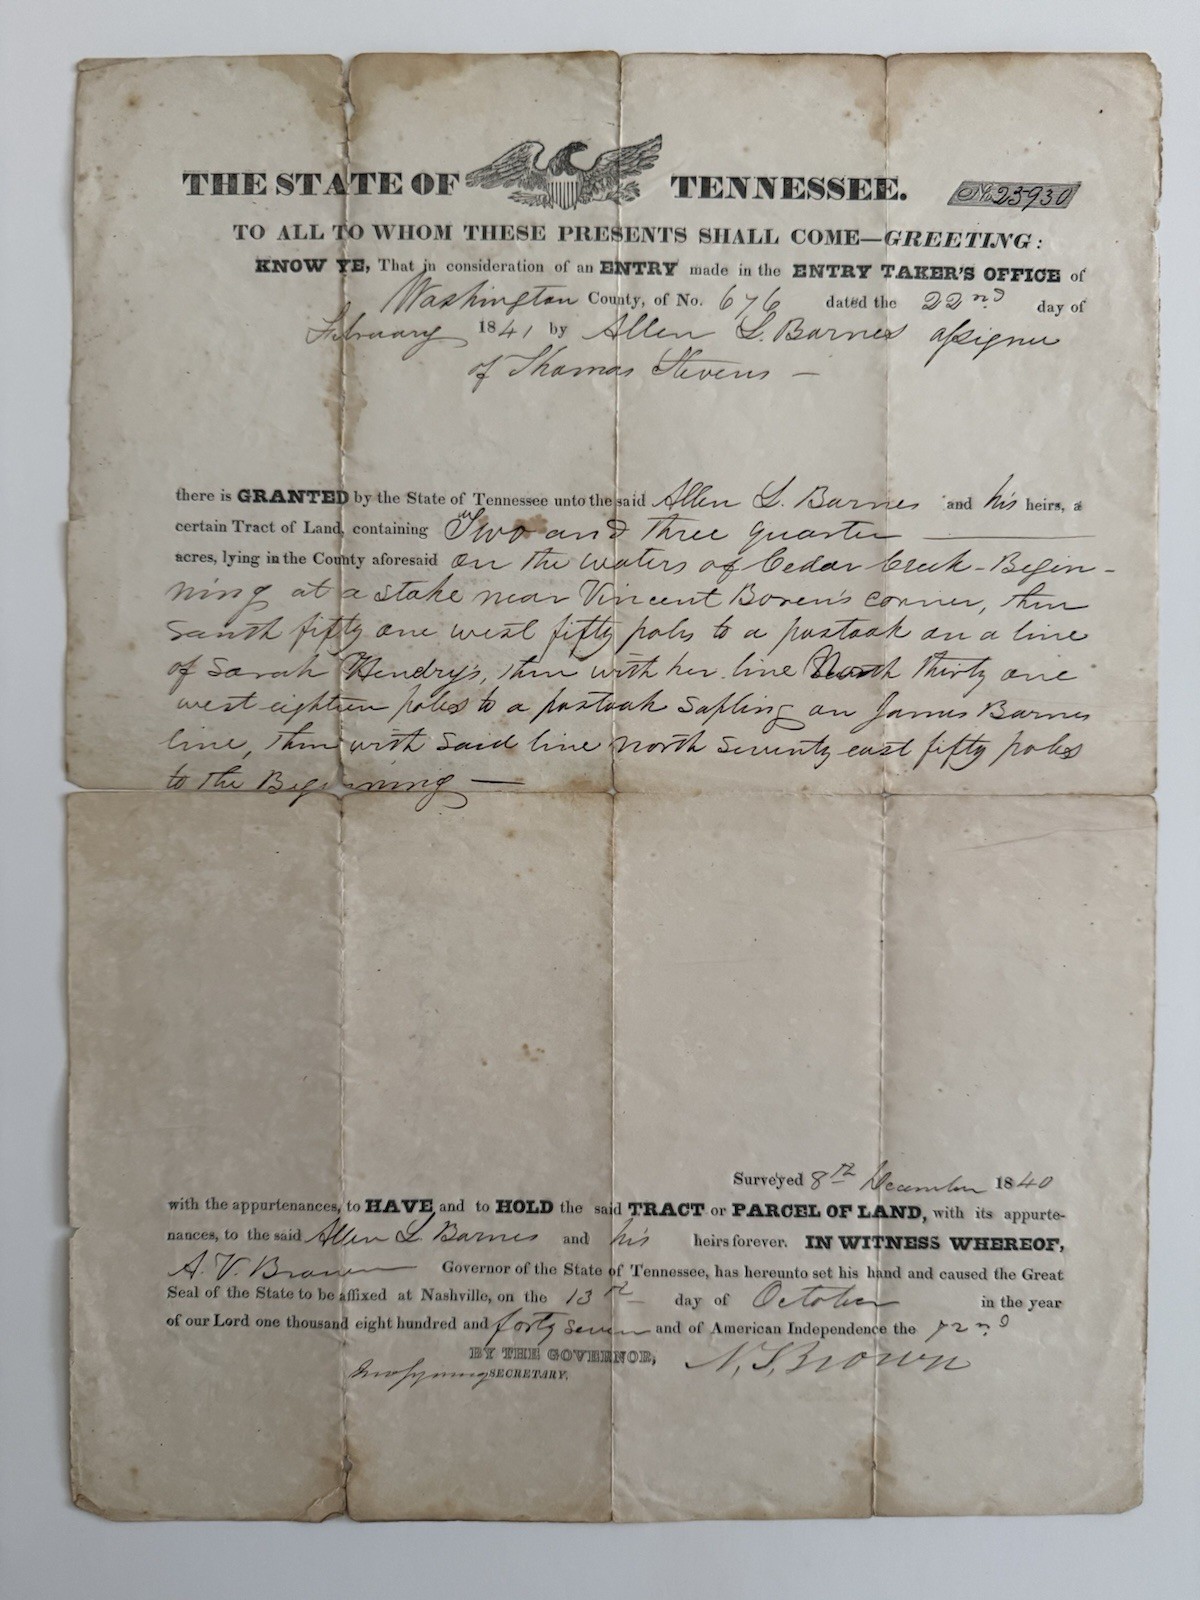 THE STATE OF TENNESSEE. No. 23930
TO ALL TO WHOM THESE PRESENTS SHALL COME—GREETING:
KNOW YE, That in consideration of an ENTRY made in the ENTRY TAKER'S OFFICE of
Washington County, of No. 676 dated the 22nd day of
February 1841 by Allen L. Barnes assignee
of Thomas Stevens —
there is GRANTED by the State of Tennessee unto the said Allen L. Barnes and his heirs, a
certain Tract of Land, containing Two and three quarter
acres, lying in the County aforesaid on the waters of Cedar Creek - Begin-
ning at a stake near Vincent Boren's corner, then
South fifty one west fifty poles to a postoak on a line
of Sarah Hendry's, then with her line North thirty one
west eighteen poles to a postoak sapling on James Barnes
line, then with said line north seventy east fifty poles
to the Beginning —
Surveyed 8th December 1840
with the appurtenances, to HAVE and to HOLD the said TRACT or PARCEL OF LAND, with its appurte-
nances, to the said Allen L. Barnes and his heirs forever. IN WITNESS WHEREOF,
A. V. Brown Governor of the State of Tennessee, has hereunto set his hand and caused the Great
Seal of the State to be affixed at Nashville, on the 13th day of October in the year
of our Lord one thousand eight hundred and forty seven and of American Independence the 72nd
BY THE GOVERNOR, N. S. Brown
SECRETARY.